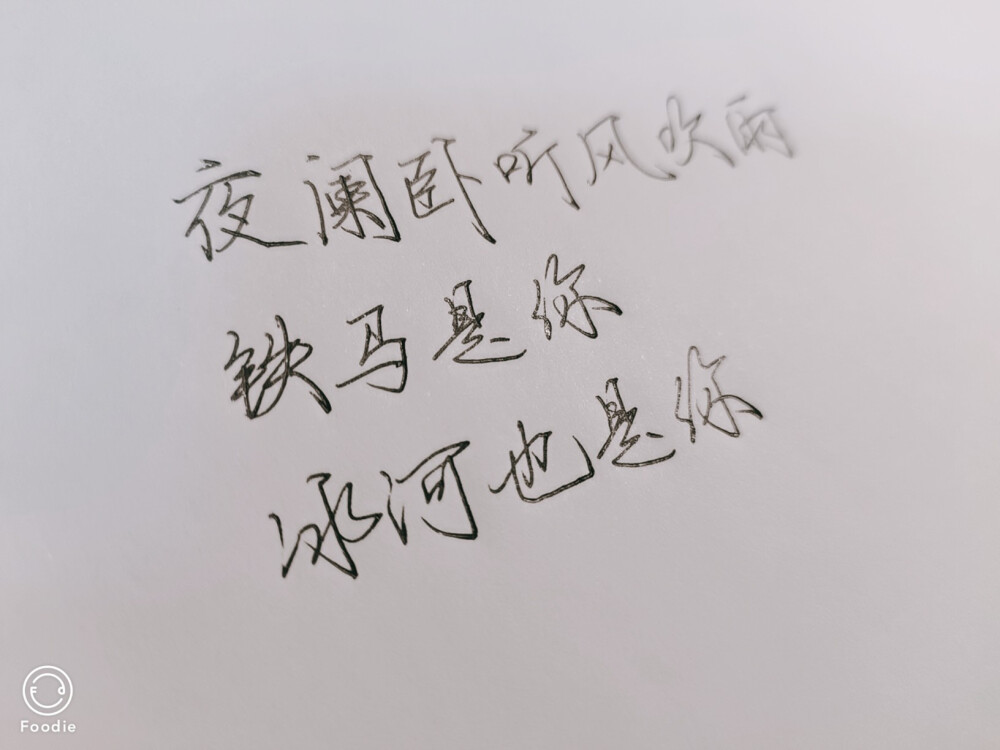 夜阑卧听风吹雨
铁马是你
冰河也是你
Foodie